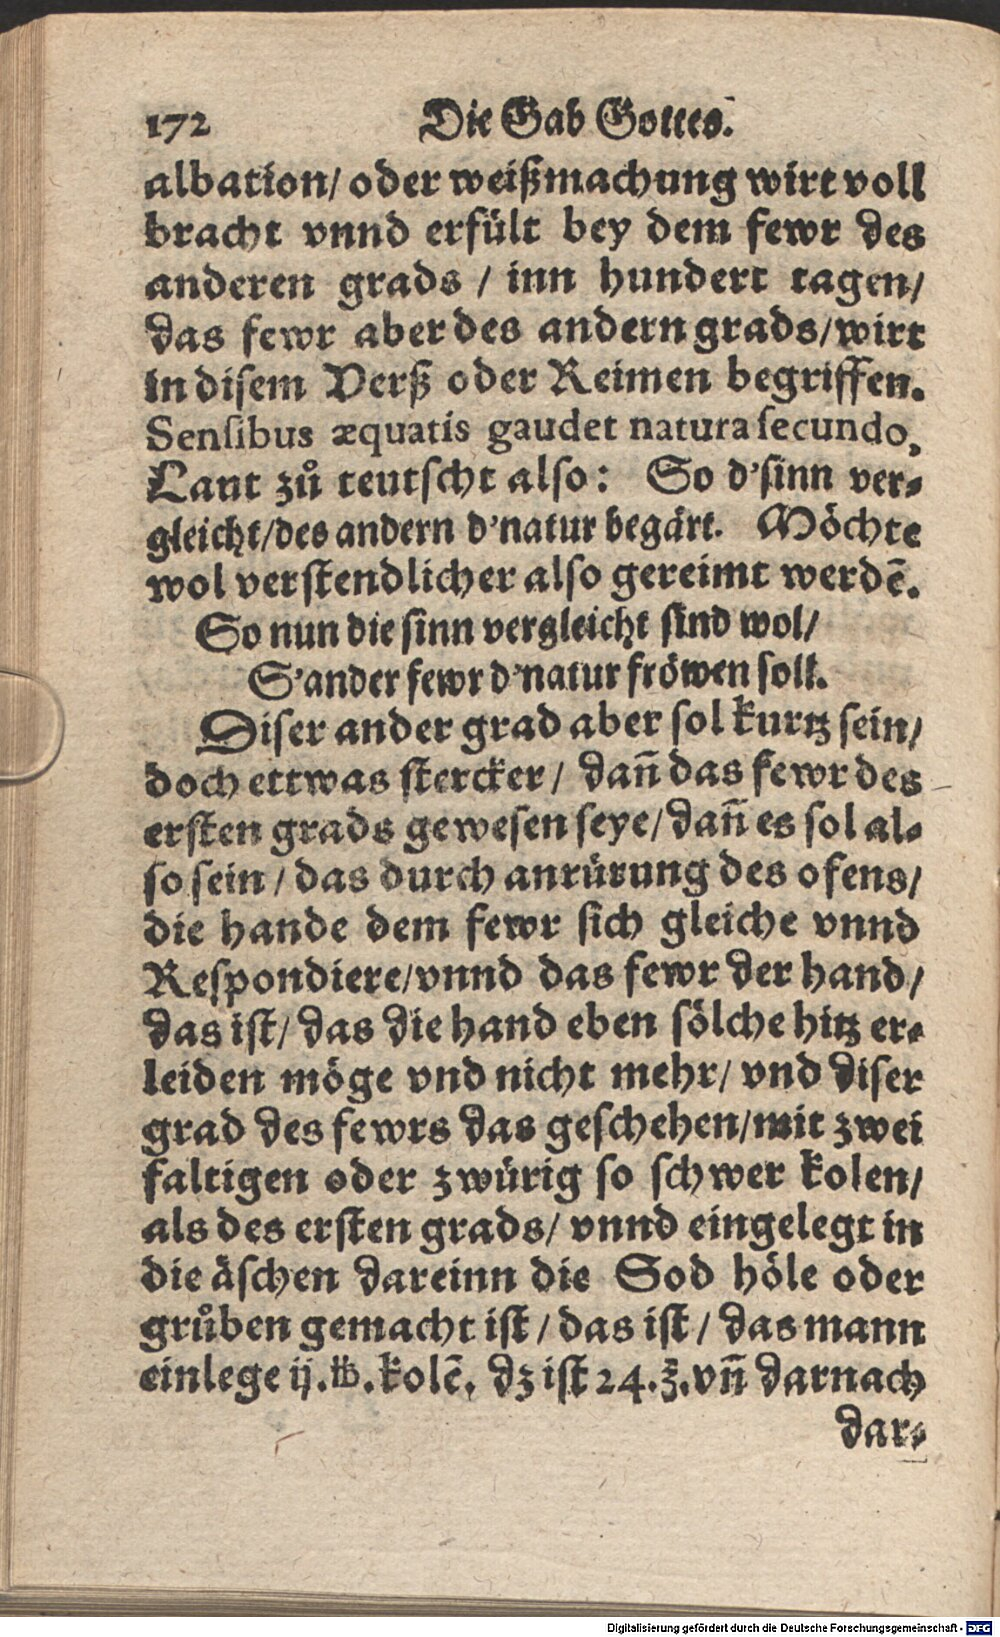 172 Die Gab Gottes.
albation/ oder weißmachung wirt voll
bracht vnnd erfült bey dem fewr des
anderen grads / inn hundert tagen/
das fewr aber des andern grads/wirt
in disem Verß oder Reimen begriffen.
Sensibus æquatis gaudet natura secundo,
Laut zů teutscht also: So d'sinn ver-
gleicht/des andern d'natur begärt. Möchte
wol verstendlicher also gereimt werdē.
So nun die sinn vergleicht sind wol/
S'ander fewr d'natur fröwen soll.
Diser ander grad aber sol kurtz sein/
doch ettwas stercker / dañ das fewr des
ersten grads gewesen seye/dañ es sol al-
so sein / das durch anrürung des ofens/
die hande dem fewr sich gleiche vnnd
Respondiere/vnnd das fewr der hand/
das ist/ das die hand eben sölche hitz er-
leiden möge vnd nicht mehr/ vnd diser
grad des fewrs das geschehen/mit zwei
faltigen oder zwürig so schwer kolen/
als des ersten grads/ vnnd eingelegt in
die äschen dareinn die Sod höle oder
grůben gemacht ist / das ist / das mann
einlege ij.℔.kolē, dz ist 24.℥.vñ darnach
dar-
Digitalisierung gefördert durch die Deutsche Forschungsgemeinschaft - DFG